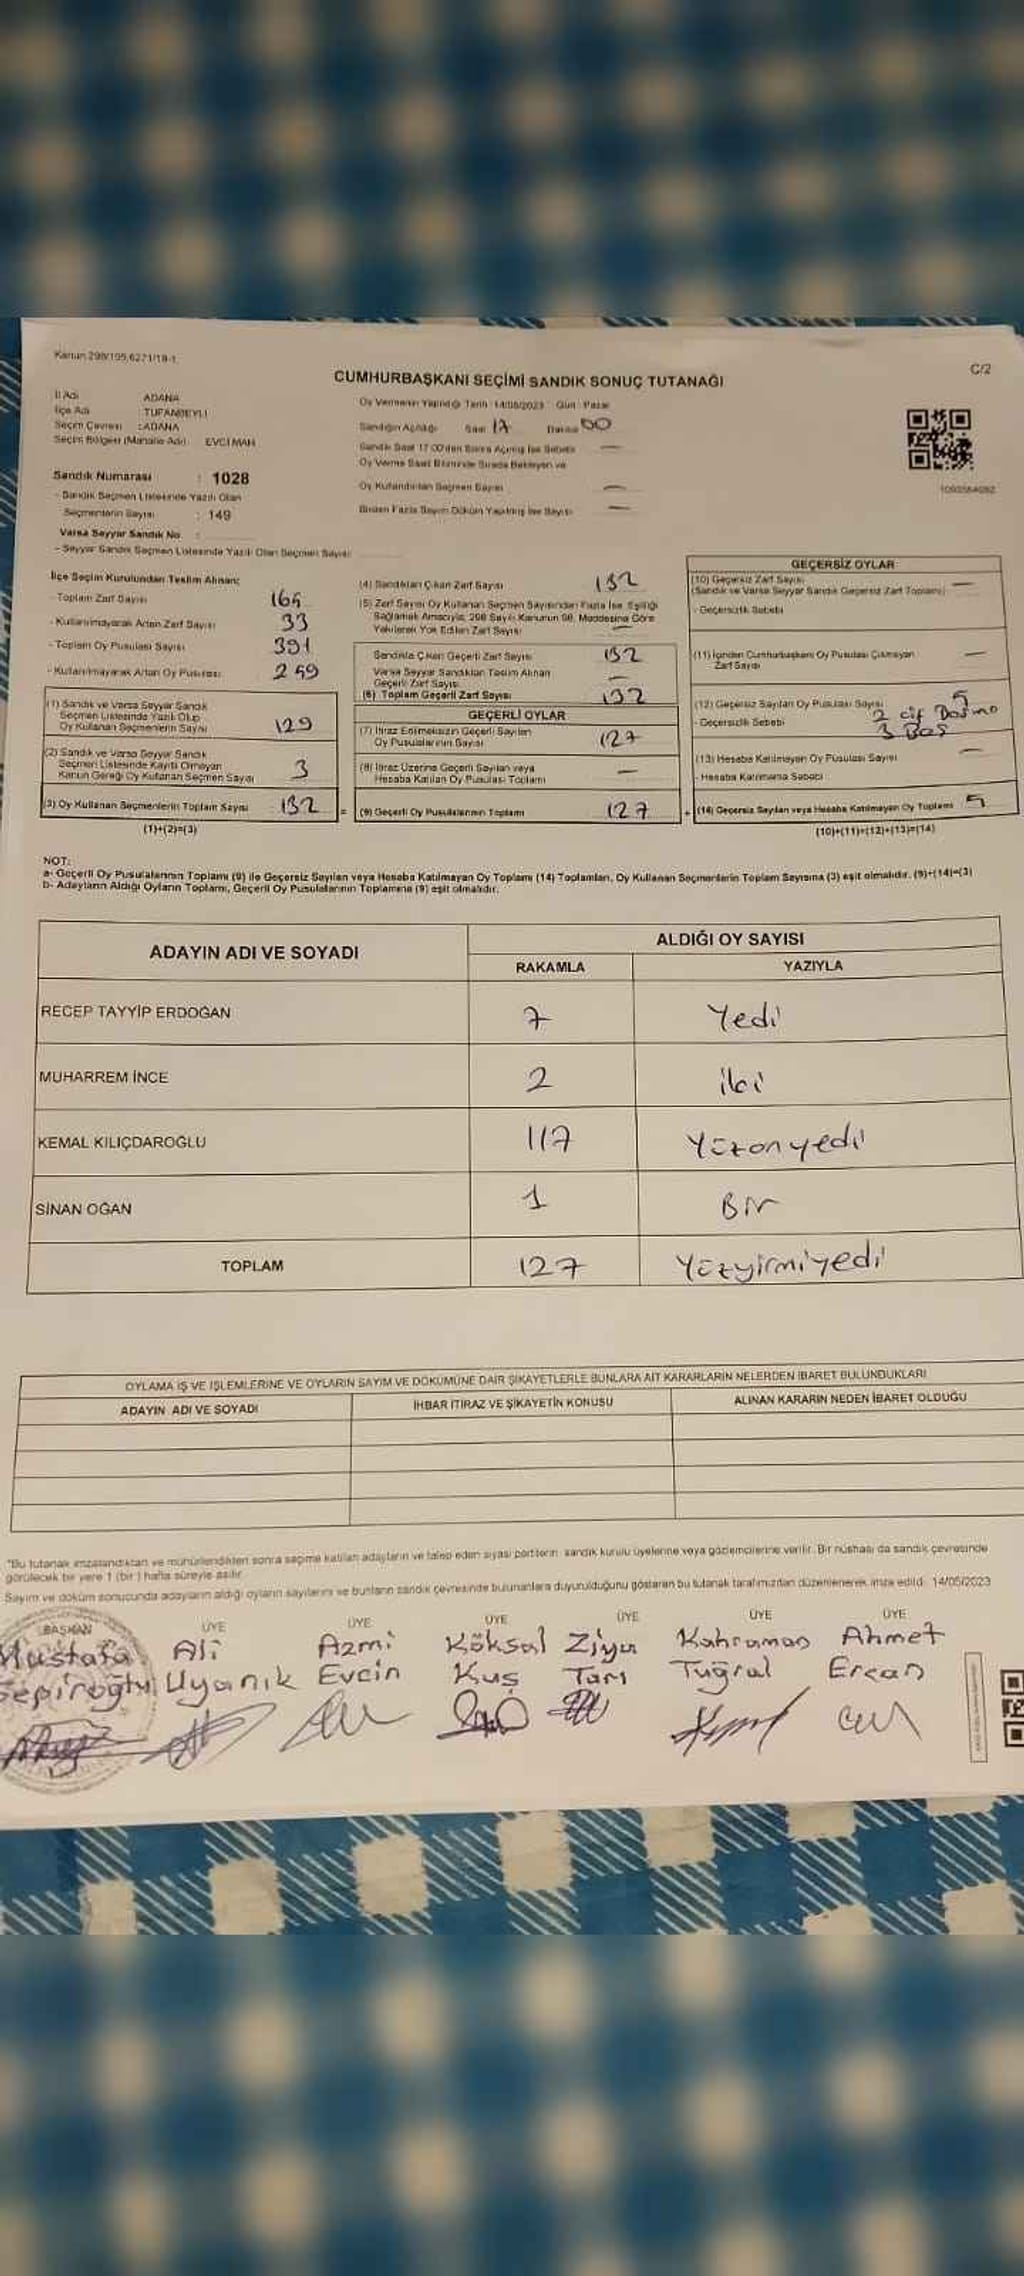 Kanun 298/195,6271/18-1
C/2
CUMHURBAŞKANI SEÇİMİ SANDIK SONUÇ TUTANAĞI
İl Adı ADANA
İlçe Adı : TUFANBEYLİ
Seçim Çevresi : ADANA
Seçim Bölgesi (Mahalle Adı) EVCİ MAH
Sandık Numarası : 1028
- Sandık Seçmen Listesinde Yazılı Olan
Seçmenlerin Sayısı : 149
Varsa Seyyar Sandık No :
- Seyyar Sandık Seçmen Listesinde Yazılı Olan Seçmen Sayısı
Oy Vermenin Yapıldığı Tarih : 14/05/2023 Gün : Pazar
Sandığın Açıldığı Saat 17 Dakika 00
Sandık Saat 17.00'den Sonra Açılmış İse Sebebi —
Oy Verme Saati Bitiminde Sırada Bekleyen ve
Oy Kullandırılan Seçmen Sayısı —
Birden Fazla Sayım Döküm Yapılmış İse Sayısı —
İlçe Seçim Kurulundan Teslim Alınan;
- Toplam Zarf Sayısı 165
- Kullanılmayarak Artan Zarf Sayısı 33
- Toplam Oy Pusulası Sayısı 391
- Kullanılmayarak Artan Oy Pusulası 259
(1) Sandık ve Varsa Seyyar Sandık
Seçmen Listesinde Yazılı Olup
Oy Kullanan Seçmenlerin Sayısı 129
(2) Sandık ve Varsa Seyyar Sandık
Seçmen Listesinde Kayıtlı Olmayan
Kanun Gereği Oy Kullanan Seçmen Sayısı 3
(3) Oy Kullanan Seçmenlerin Toplam Sayısı 132 =
(1)+(2)=(3)
(4) Sandıktan Çıkan Zarf Sayısı 132
(5) Zarf Sayısı Oy Kullanan Seçmen Sayısından Fazla İse, Eşitliği
Sağlamak Amacıyla, 298 Sayılı Kanunun 98. Maddesine Göre
Yakılarak Yok Edilen Zarf Sayısı —
Sandıkta Çıkan Geçerli Zarf Sayısı 132
Varsa Seyyar Sandıktan Teslim Alınan
Geçerli Zarf Sayısı —
(6) Toplam Geçerli Zarf Sayısı 132
GEÇERLİ OYLAR
(7) İtiraz Edilmeksizin Geçerli Sayılan
Oy Pusulalarının Sayısı 127
(8) İtiraz Üzerine Geçerli Sayılan veya
Hesaba Katılan Oy Pusulası Toplamı —
(9) Geçerli Oy Pusulalarının Toplamı 127 +
GEÇERSİZ OYLAR
(10) Geçersiz Zarf Sayısı —
(Sandık ve Varsa Seyyar Sandık Geçersiz Zarf Toplamı)
- Geçersizlik Sebebi
(11) İçinden Cumhurbaşkanı Oy Pusulası Çıkmayan
Zarf Sayısı —
(12) Geçersiz Sayılan Oy Pusulası Sayısı 5
- Geçersizlik Sebebi 2 Çif Basma
3 Baş
(13) Hesaba Katılmayan Oy Pusulası Sayısı —
- Hesaba Katılmama Sebebi
(14) Geçersiz Sayılan veya Hesaba Katılmayan Oy Toplamı 5
(10)+(11)+(12)+(13)=(14)
NOT:
a- Geçerli Oy Pusulalarının Toplamı (9) ile Geçersiz Sayılan veya Hesaba Katılmayan Oy Toplamı (14) Toplamları, Oy Kullanan Seçmenlerin Toplam Sayısına (3) eşit olmalıdır. (9)+(14)=(3)
b- Adayların Aldığı Oyların Toplamı, Geçerli Oy Pusulalarının Toplamına (9) eşit olmalıdır.
ADAYIN ADI VE SOYADI
ALDIĞI OY SAYISI
RAKAMLA YAZIYLA
RECEP TAYYİP ERDOĞAN 7 Yedi
MUHARREM İNCE 2 iki
KEMAL KILIÇDAROĞLU 117 Yüzonyedi
SİNAN OĞAN 1 Bir
TOPLAM 127 Yüzyirmiyedi
OYLAMA İŞ VE İŞLEMLERİNE VE OYLARIN SAYIM VE DÖKÜMÜNE DAİR ŞİKAYETLERLE BUNLARA AİT KARARLARIN NELERDEN İBARET BULUNDUKLARI
ADAYIN ADI VE SOYADI İHBAR İTİRAZ VE ŞİKAYETİN KONUSU ALINAN KARARIN NEDEN İBARET OLDUĞU
"Bu tutanak imzalandıktan ve mühürlendikten sonra seçime katılan adayların ve talep eden siyasi partilerin sandık kurulu üyelerine veya gözlemcilerine verilir. Bir nüshası da sandık çevresinde
görülecek bir yere 1 (bir) hafta süreyle asılır.
Sayım ve döküm sonucunda adayların aldığı oyların sayılarını ve bunların sandık çevresinde bulunanlara duyurulduğunu gösteren bu tutanak tarafımızdan düzenlenerek imza edildi. 14/05/2023
BAŞKAN ÜYE ÜYE ÜYE ÜYE ÜYE ÜYE
Mustafa Ali Azmi Köksal Ziya Kahraman Ahmet
Uyanık Evcin Kuş Tam Tuğral Ercan